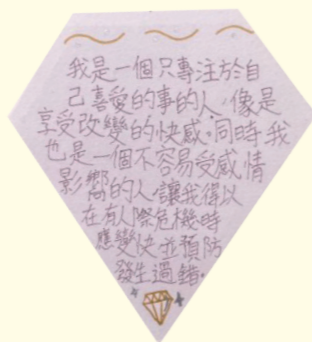 我是一個只專注於自
己喜愛的事的人,像是
享受改變的快感。同時我
也是一個不容易受感情
影嚮的人讓我得以
在有人際危機時
應變快並預防
發生過錯。